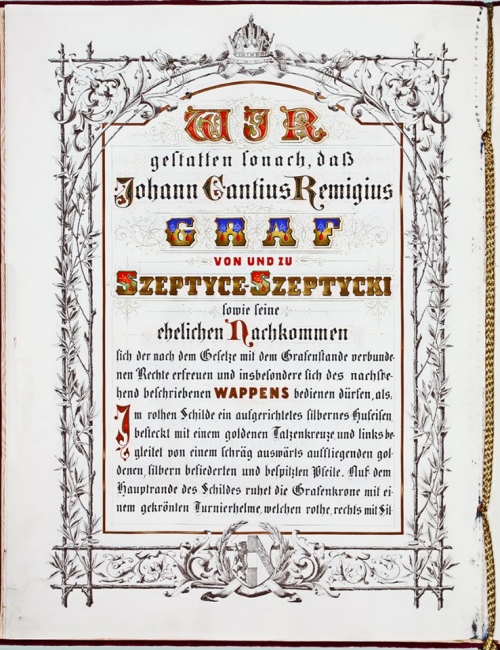 WIR
gestatten sonach, daß
Johann Cantius Remigius
GRAF
VON UND ZU
SZEPTYCE-SZEPTYCKI
sowie seine
ehelichen Nachkommen
sich der nach dem Gesetze mit dem Grafenstande verbunde-
nen Rechte erfreuen und insbesondere sich des nachste-
hend beschriebenen WAPPENS bedienen dürfen, als,
Im rothen Schilde ein aufgerichtetes silbernes Hufeisen,
besteckt mit einem goldenen Tatzenkreuze, und links be-
gleitet von einem schräg auswärts auffliegenden gol-
denen, silbern befiederten und bespitzten Pfeile. Auf dem
Hauptrande des Schildes ruhet die Grafenkrone mit ei-
nem gekrönten Turnierhelme, welchen rothe, rechts mit Sil-